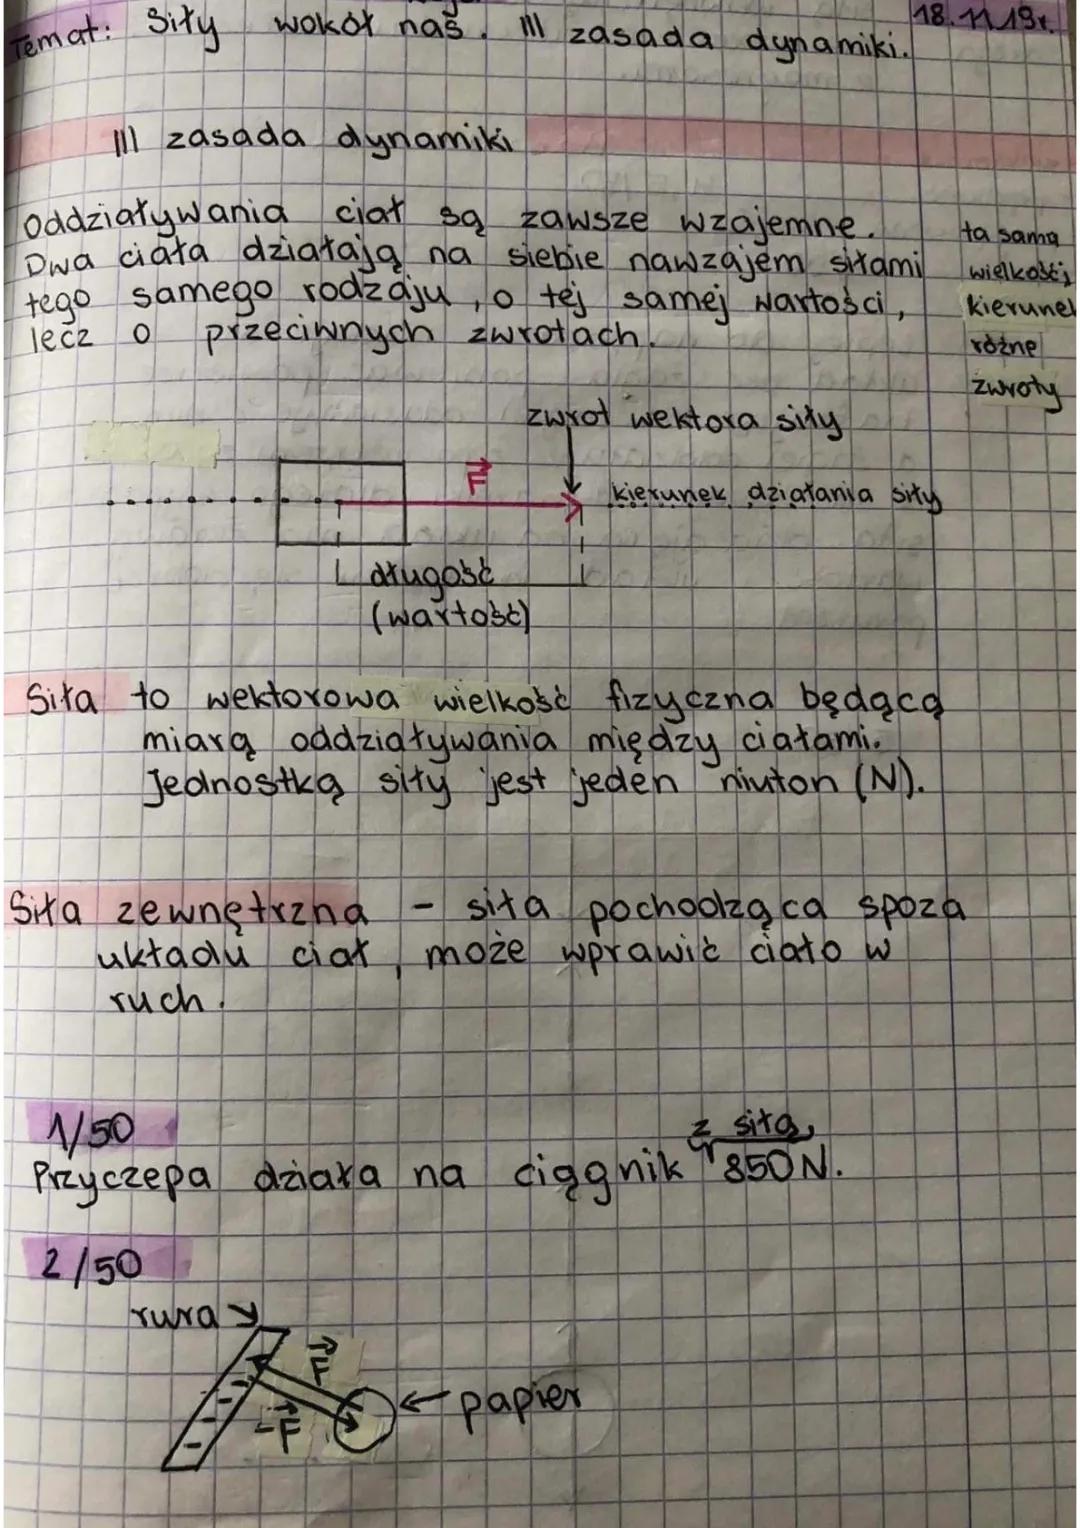 18.11.19r.
Temat: Siły wokół nas. III zasada dynamiki.
III zasada dynamiki
Oddziaływania ciał są zawsze wzajemne.
Dwa ciała działają na siebie nawzajem siłami
tego samego rodzaju, o tej samej wartości,
lecz o przeciwnych zwrotach.
ta sama
wielkość,
kierunek
różne
zwroty
zwrot wektora siły
F
kierunek działania siły
długość
(wartość)
Siła to wektorowa wielkość fizyczna będącą
miarą oddziaływania między ciałami.
Jednostką siły jest jeden niuton (N).
Siła zewnętrzna - siła pochodząca spoza
układu ciał, może wprawić ciało w
ruch.
1/50
z siłą
Przyczepa działa na ciągnik 850N.
2/50
rura
F
-F
papier